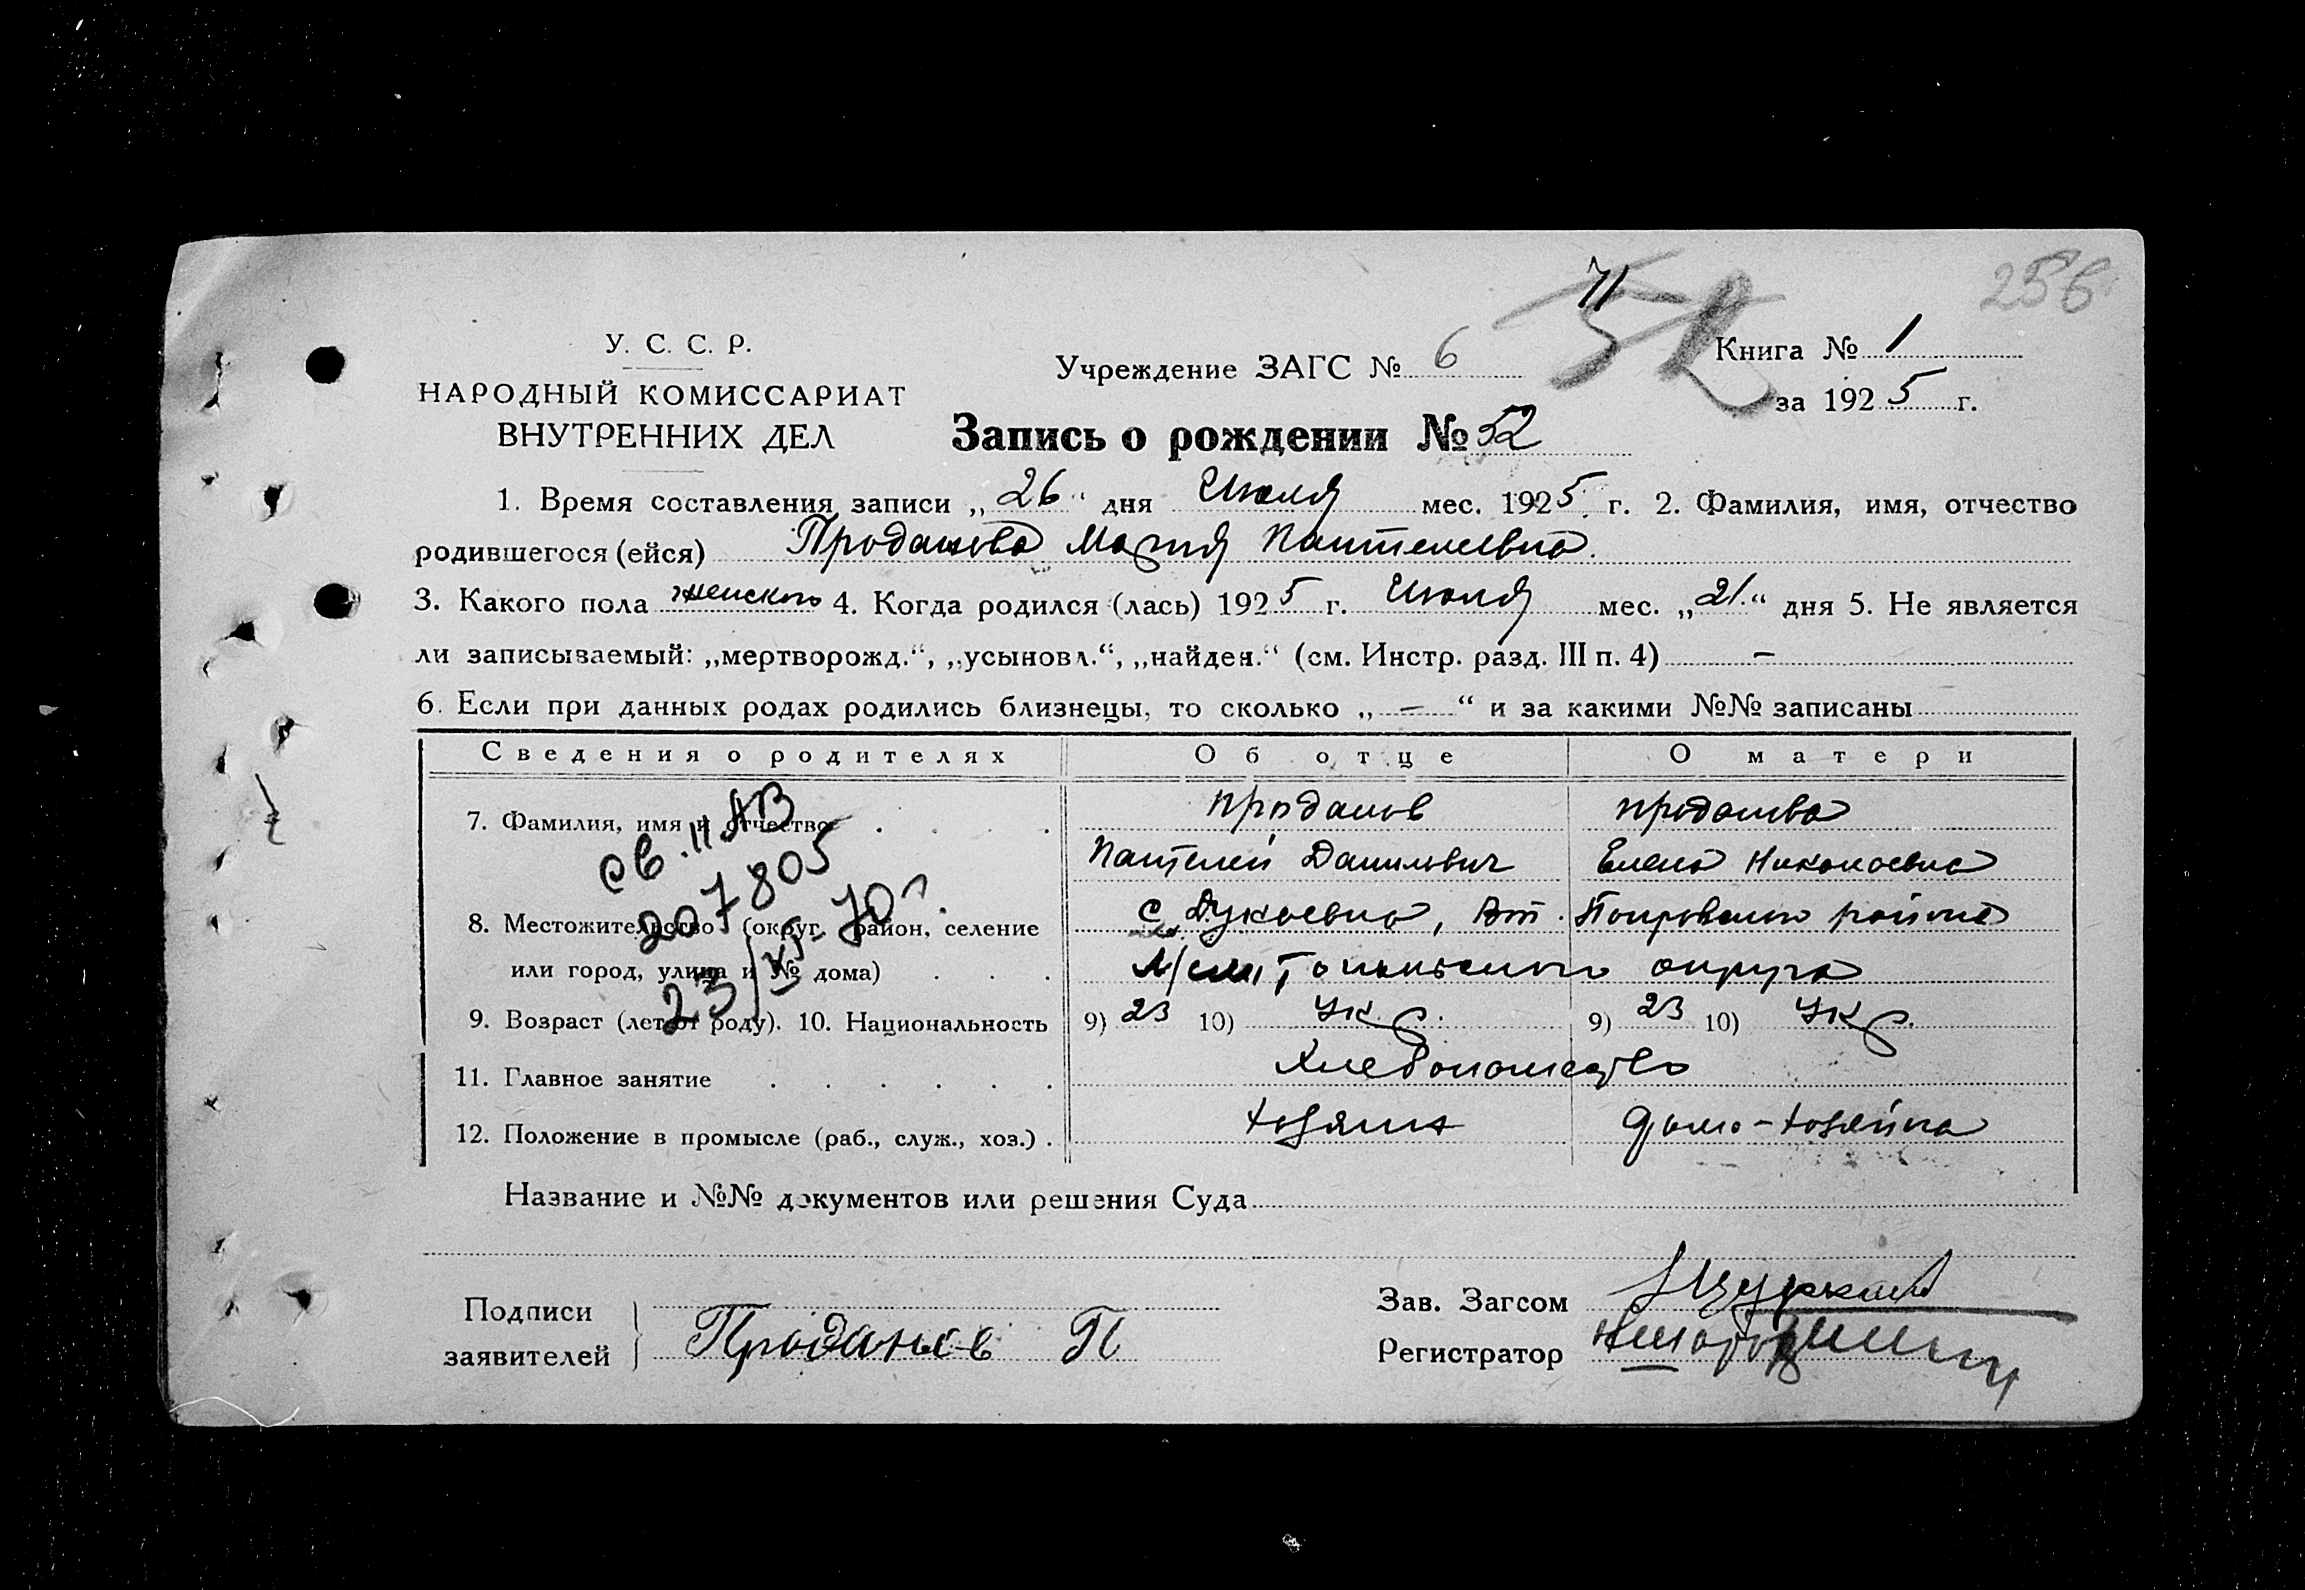 256
71
52
У. С. С. Р.
НАРОДНЫЙ КОМИССАРИАТ
ВНУТРЕННИХ ДЕЛ
Учреждение ЗАГС № 6
Книга № 1
за 1925 г.
Запись о рождении № 52
1. Время составления записи „26“ дня Июля мес. 1925 г. 2. Фамилия, имя, отчество
родившегося (ейся) Проданова Мария Пантелеевна.
3. Какого пола женского 4. Когда родился (лась) 1925 г. Июля мес. „21.“ дня 5. Не является
ли записываемый: „мертворожд.“, „усыновл.“, „найден.“ (см. Инстр. разд. III п. 4) —
6. Если при данных родах родились близнецы, то сколько „—“ и за какими №№ записаны
Сведения о родителях Об отце О матери
7. Фамилия, имя и отчество Проданов Проданова
Пантелей Данилович Елена Николаевна
8. Местожительство (округ, район, селение с. , Вт. Покровского района
или город, улица и № дома) Мелитопольского округа
9. Возраст (лет от роду). 10. Национальность 9) 23 10) Укр. 9) 23 10) Укр.
11. Главное занятие Хлебопашество
12. Положение в промысле (раб., служ., хоз.) хозяин домо-хозяйка
св. II АВ
207805
23/XI-70г.
Название и №№ документов или решения Суда
Подписи
заявителей
Проданов П
Зав. Загсом
Регистратор